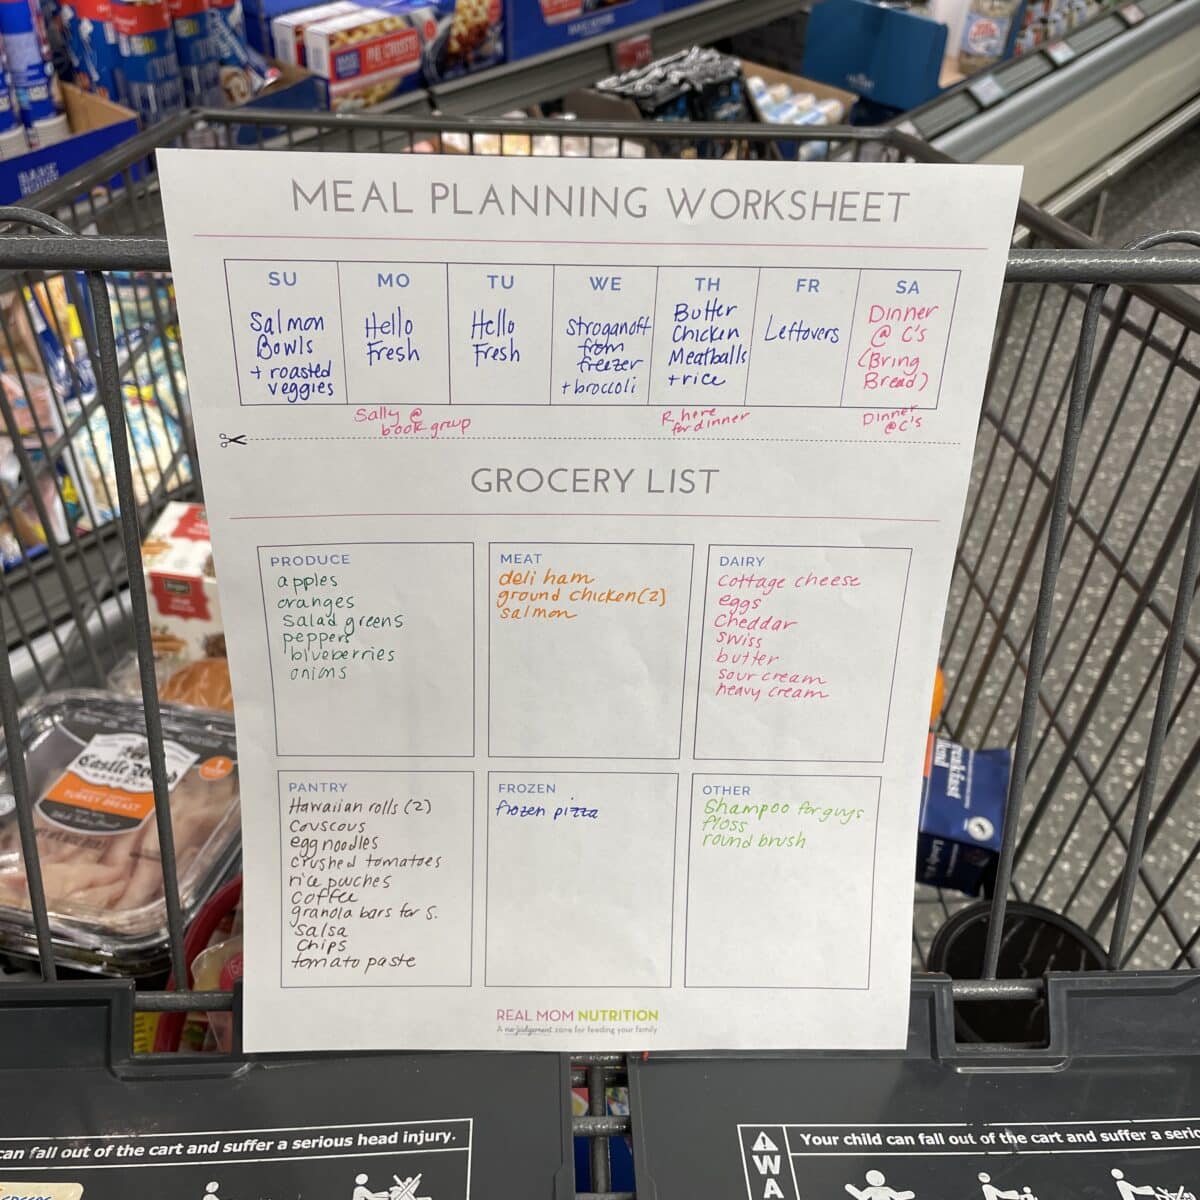 PIE CRUSTS
MEAL PLANNING WORKSHEET
SU MO TU WE TH FR SA
Salmon
Bowls
+ roasted
veggies
Hello
Fresh
Hello
Fresh
Stroganoff
from
freezer
+ broccoli
Butter
Chicken
Meatballs
+ rice
Leftovers
Dinner
@ C's
(Bring
Bread)
Sally @
book group
R here
for dinner
Dinner
@C's
GROCERY LIST
PRODUCE
apples
oranges
salad greens
peppers
blueberries
onions
MEAT
deli ham
ground chicken (2)
salmon
DAIRY
cottage cheese
eggs
cheddar
swiss
butter
sour cream
heavy cream
PANTRY
Hawaiian rolls (2)
couscous
egg noodles
crushed tomatoes
rice pouches
coffee
granola bars for S.
salsa
chips
tomato paste
FROZEN
frozen pizza
OTHER
Shampoo for guys
floss
round brush
REAL MOM NUTRITION
A no-judgement zone for feeding your family
Castle Wood
RESERVE
TURKEY BREAST
breakfast
blend
can fall out of the cart and suffer a serious head injury.
WA
Your child can fall out of the cart and suffer a serio